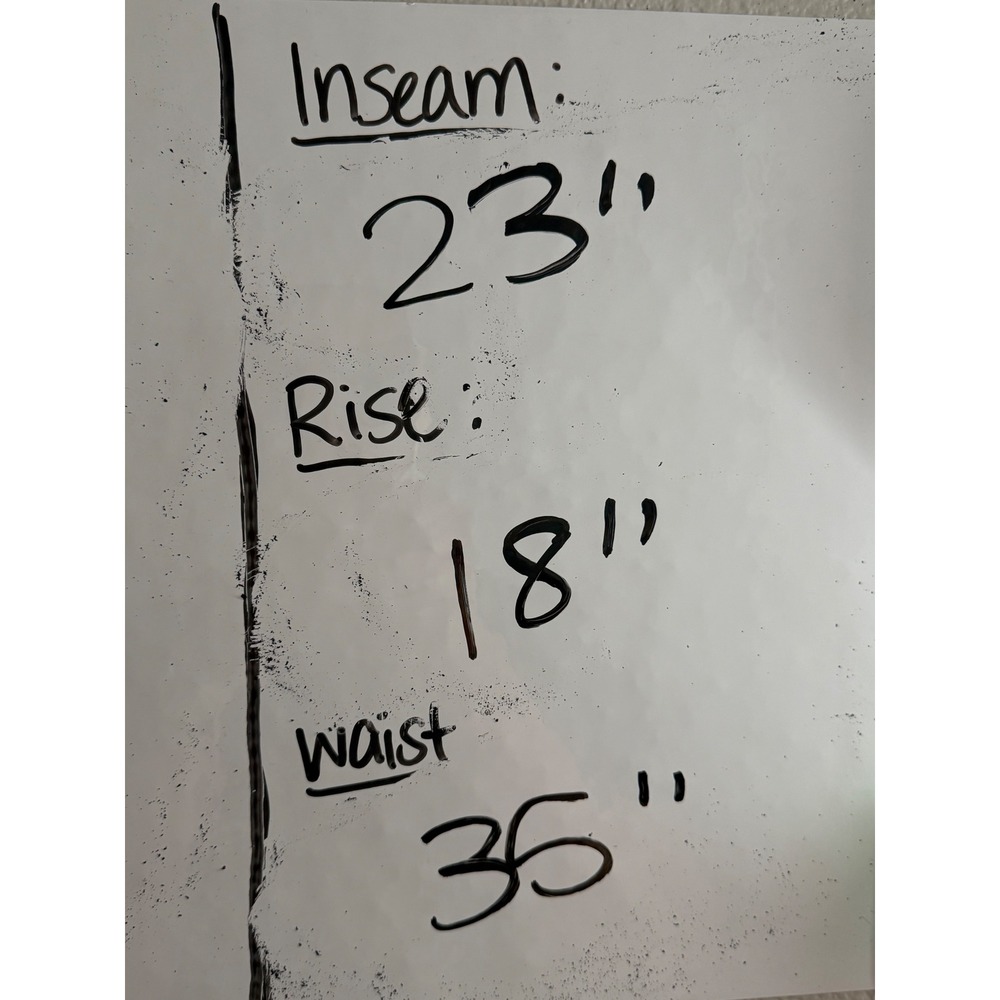 Inseam:
23"
Rise:
18"
waist
35"